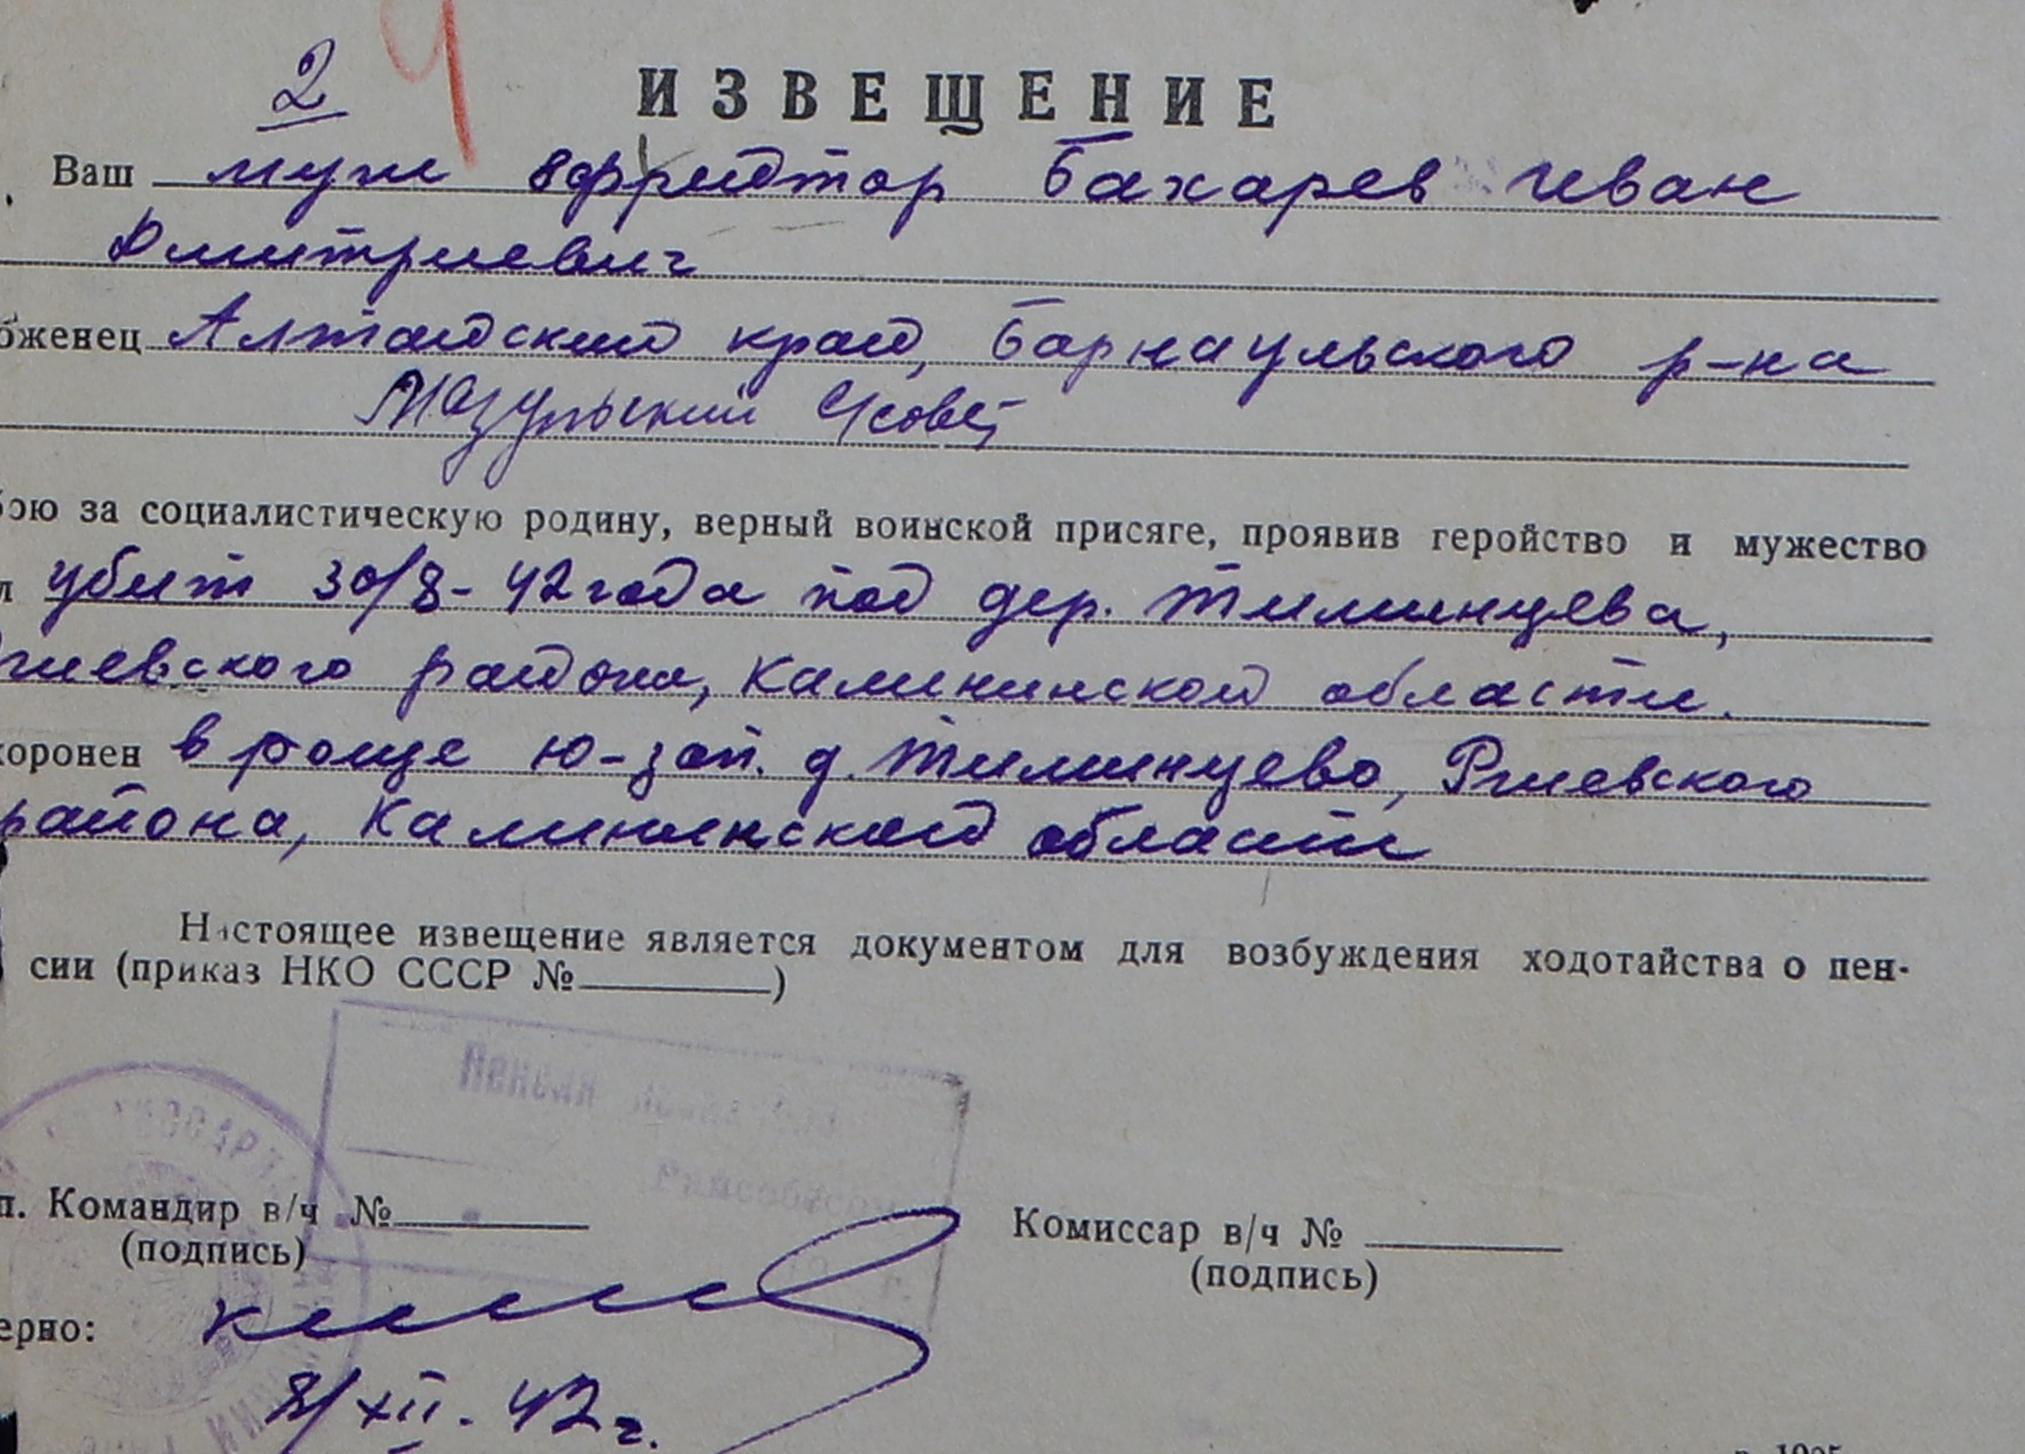 2 4
ИЗВЕЩЕНИЕ
Ваш муж ефрейтор Бахарев Иван
Дмитриевич
оженец Алтайский край, Барнаульского р-на
Мазульский с/совет
бою за социалистическую родину, верный воинской присяге, проявив геройство и мужество
л убит 30/8-42 года под дер. Тиминцева,
жевского района, Калининской области.
хоронен в роще ю-зап. д. Тиминцево, Ржевского
района, Калининской области
Настоящее извещение является документом для возбуждения ходотайства о пен-
сии (приказ НКО СССР № )
Пенсия
п. Командир в/ч №
Комиссар в/ч №
(подпись)
(подпись)
ерно:
8/XII. 42 г.